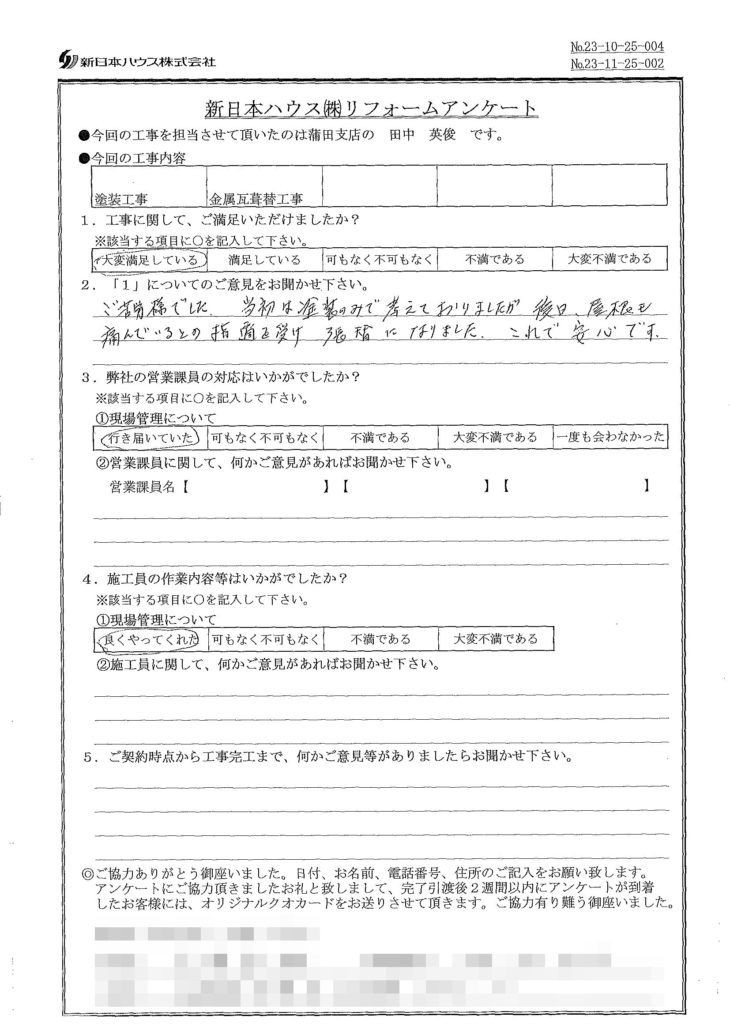 新日本ハウス株式会社
№23-10-25-004
№23-11-25-002
新日本ハウス㈱リフォームアンケート
●今回の工事を担当させて頂いたのは蒲田支店の 田中 英俊 です。
●今回の工事内容
塗装工事 金属瓦葺替工事
１．工事に関して、ご満足いただけましたか？
※該当する項目に○を記入して下さい。
大変満足している 満足している 可もなく不可もなく 不満である 大変不満である
２．「１」についてのご意見をお聞かせ下さい。
ご苦労様でした. 当初は塗装のみで考えておりましたが 後日、屋根も
痛んでいるとの指摘を受け 張替になりました. これで安心です.
３．弊社の営業課員の対応はいかがでしたか？
※該当する項目に○を記入して下さい。
①現場管理について
行き届いていた 可もなく不可もなく 不満である 大変不満である 一度も会わなかった
②営業課員に関して、何かご意見があればお聞かせ下さい。
営業課員名【 】【 】【 】
４．施工員の作業内容等はいかがでしたか？
※該当する項目に○を記入して下さい。
①現場管理について
良くやってくれた 可もなく不可もなく 不満である 大変不満である
②施工員に関して、何かご意見があればお聞かせ下さい。
５．ご契約時点から工事完工まで、何かご意見等がありましたらお聞かせ下さい。
◎ご協力ありがとう御座いました。日付、お名前、電話番号、住所のご記入をお願い致します。
アンケートにご協力頂きましたお礼と致しまして、完了引渡後２週間以内にアンケートが到着
したお客様には、オリジナルクオカードをお送りさせて頂きます。ご協力有り難う御座いました。